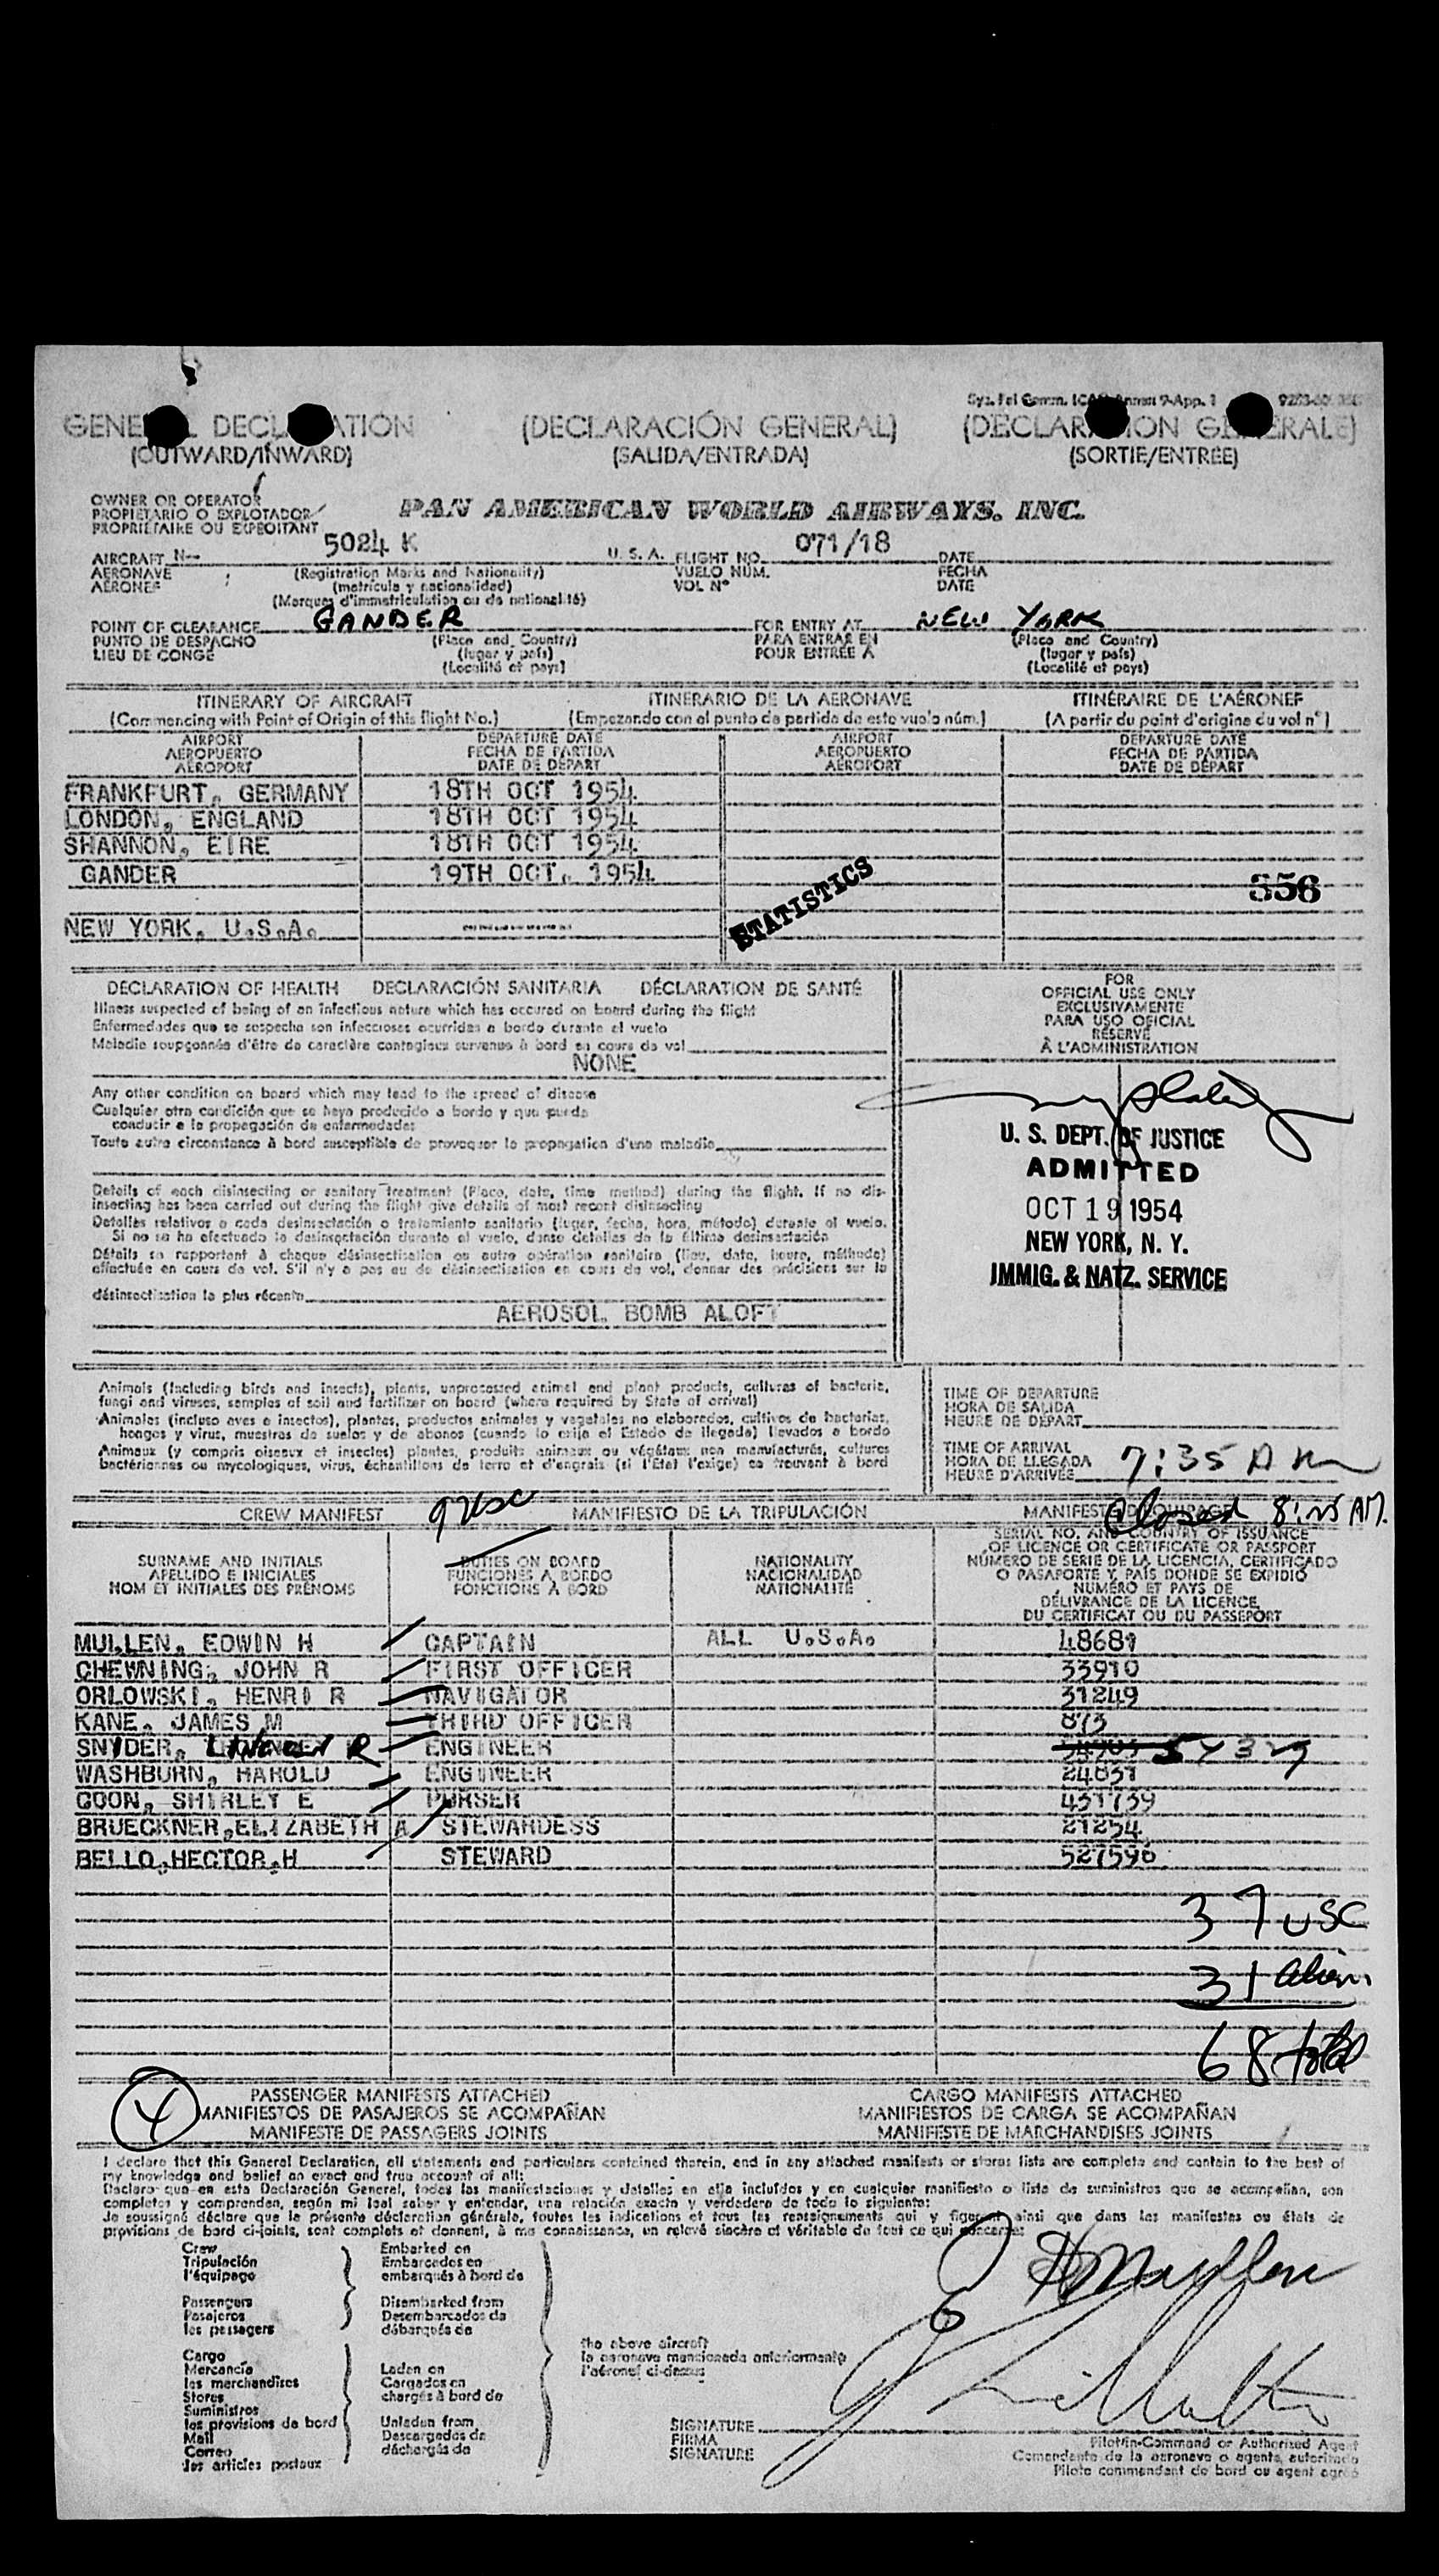 Annex 9-App. 1
GENERAL DECLARATION (DECLARACIÓN GENERAL) (DÉCLARATION GÉNÉRALE)
(OUTWARD/INWARD) (SALIDA/ENTRADA) (SORTIE/ENTRÉE)
OWNER OR OPERATOR
PROPIETARIO O EXPLOTADOR
PROPRIÉTAIRE OU EXPLOITANT
PAN AMERICAN WORLD AIRWAYS, INC.
AIRCRAFT N-- 5024 K U. S. A. FLIGHT NO. 071/18 DATE
AERONAVE (Registration Marks and Nationality) VUELO NÚM. FECHA
AÉRONEF (matrícula y nacionalidad) VOL N° DATE
(Marques d'immatriculation ou de nationalité)
POINT OF CLEARANCE GANDER FOR ENTRY AT NEW YORK
PUNTO DE DESPACHO (Place and Country) PARA ENTRAR EN (Place and Country)
LIEU DE CONGÉ (lugar y país) POUR ENTRÉE À (lugar y país)
(Localité et pays) (Localité et pays)
ITINERARY OF AIRCRAFT ITINERARIO DE LA AERONAVE ITINÉRAIRE DE L'AÉRONEF
(Commencing with Point of Origin of this flight No.) (Empezando con el punto de partida de este vuelo núm.) (A partir du point d'origine du vol n°)
AIRPORT DEPARTURE DATE AIRPORT DEPARTURE DATE
AEROPUERTO FECHA DE PARTIDA AEROPUERTO FECHA DE PARTIDA
AÉROPORT DATE DE DÉPART AÉROPORT DATE DE DÉPART
FRANKFURT, GERMANY 18TH OCT 1954
LONDON, ENGLAND 18TH OCT 1954
SHANNON, EIRE 18TH OCT 1954
GANDER 19TH OCT. 1954
STATISTICS
356
NEW YORK, U.S.A. -----------
DECLARATION OF HEALTH DECLARACIÓN SANITARIA DÉCLARATION DE SANTÉ
Illness suspected of being of an infectious nature which has occured on board during the flight
Enfermedades que se sospecha son infecciosas ocurridas a bordo durante el vuelo
Maladie soupçonnée d'être de caractère contagieux survenue à bord en cours de vol
NONE
Any other condition on board which may lead to the spread of disease
Cualquier otra condición que se haya producido a bordo y que pueda
conducir a la propagación de enfermedades
Toute autre circonstance à bord susceptible de provoquer la propagation d'une maladie
Details of each disinsecting or sanitary treatment (Place, date, time method) during the flight. If no dis-
insecting has been carried out during the flight give details of most recent disinsecting
Detalles relativos a cada desinsectación o tratamiento sanitario (lugar, fecha, hora, método) durante el vuelo.
Si no se ha efectuado la desinsectación durante el vuelo, dense detalles de la última desinsectación
Détails se rapportant à chaque désinsectisation ou autre opération sanitaire (lieu, date, heure, méthode)
effectuée en cours de vol. S'il n'y a pas eu de désinsectisation en cours de vol, donner des précisions sur la
désinsectisation la plus récente
AEROSOL BOMB ALOFT
FOR
OFFICIAL USE ONLY
EXCLUSIVAMENTE
PARA USO OFICIAL
RÉSERVÉ
À L'ADMINISTRATION
U. S. DEPT. OF JUSTICE
ADMITTED
OCT 19 1954
NEW YORK, N. Y.
IMMIG. & NATZ. SERVICE
Animals (including birds and insects), plants, unprocessed animal and plant products, cultures of bacteria,
fungi and viruses, samples of soil and fertilizer on board (where required by State of arrival)
Animales (incluso aves e insectos), plantas, productos animales y vegetales no elaborados, cultivos de bacterias,
hongos y virus, muestras de suelos y de abonos (cuando lo exija el Estado de llegada) llevados a bordo
Animaux (y compris oiseaux et insectes) plantes, produits animaux ou végétaux non manufacturés, cultures
bactériennes ou mycologiques, virus, échantillons de terre et d'engrais (si l'État l'exige) se trouvant à bord
TIME OF DEPARTURE
HORA DE SALIDA
HEURE DE DÉPART
TIME OF ARRIVAL
HORA DE LLEGADA
HEURE D'ARRIVÉE
7:35 AM
Closed 8:25 AM.
CREW MANIFEST 9 USC MANIFIESTO DE LA TRIPULACIÓN MANIFESTE D'ÉQUIPAGE
SURNAME AND INITIALS
APELLIDO E INICIALES
NOM ET INITIALES DES PRÉNOMS
DUTIES ON BOARD
FUNCIONES A BORDO
FONCTIONS À BORD
NATIONALITY
NACIONALIDAD
NATIONALITÉ
SERIAL NO. AND COUNTRY OF ISSUANCE
OF LICENCE OR CERTIFICATE OR PASSPORT
NÚMERO DE SERIE DE LA LICENCIA, CERTIFICADO
O PASAPORTE Y PAÍS DONDE SE EXPIDIÓ
NUMÉRO ET PAYS DE
DÉLIVRANCE DE LA LICENCE,
DU CERTIFICAT OU DU PASSEPORT
MULLEN, EDWIN H CAPTAIN ALL U.S.A. 48689
CHEWNING, JOHN R FIRST OFFICER 33910
ORLOWSKI, HENRI R NAVIGATOR 31249
KANE, JAMES M THIRD OFFICER 873
SNYDER, LINCOLN R ENGINEER
WASHBURN, HAROLD ENGINEER 24837
COON, SHIRLEY E PURSER 431739
BRUECKNER,ELIZABETH A STEWARDESS 21254
BELLO,HECTOR,H STEWARD 527596
37 USC
31 alien
68 total
4
PASSENGER MANIFESTS ATTACHED CARGO MANIFESTS ATTACHED
MANIFIESTOS DE PASAJEROS SE ACOMPAÑAN MANIFIESTOS DE CARGA SE ACOMPAÑAN
MANIFESTE DE PASSAGERS JOINTS MANIFESTE DE MARCHANDISES JOINTS
I declare that this General Declaration, all statements and particulars contained therein, and in any attached manifests or stores lists are complete and contain to the best of
my knowledge and belief an exact and true account of all:
Declaro que en esta Declaración General, todas las manifestaciones y detalles en ella incluídos y en cualquier manifiesto o lista de suministros que se acompañan, son
completos y comprenden, según mi leal saber y entender, una relación exacta y verdadera de todo lo siguiente:
Je soussigné déclare que la présente déclaration générale, toutes les indications et tous les renseignements qui y figurent ainsi que dans les manifestes ou états de
provisions de bord ci-joints, sont complets et donnent, à ma connaissance, un relevé sincère et véritable de tout ce qui concerne:
Crew
Tripulación
l'équipage
Passengers
Pasajeros
les passagers
Cargo
Mercancía
les marchandises
Stores
Suministros
les provisions de bord
Mail
Correo
les articles postaux
Embarked on
Embarcados en
embarqués à bord de
Disembarked from
Desembarcados de
débarqués de
Laden on
Cargados en
chargés à bord de
Unladen from
Descargados de
déchargés de
the above aircraft
la aeronave mencionada anteriormente
l'aéronef ci-dessus
EHMullen
SIGNATURE
FIRMA
SIGNATURE
Pilot-in-Command or Authorized Agent
Comandante de la aeronave o agente autorizado
Pilote commandant de bord ou agent agréé